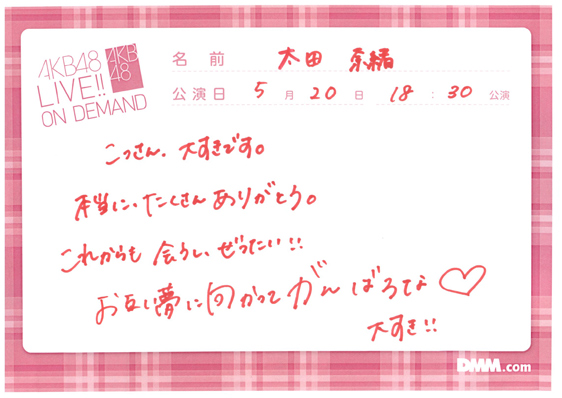 AKB48
LIVE!!
ON DEMAND
AKB
48
名前 太田 奈緒
公演日 5月 20日 18:30 公演
こっさん、大すきです。
本当に、たくさんありがとう。
これからも 会うし、ぜったい!!
お互い夢に向かって がんばろな ♡
大すき!!
DMM.com